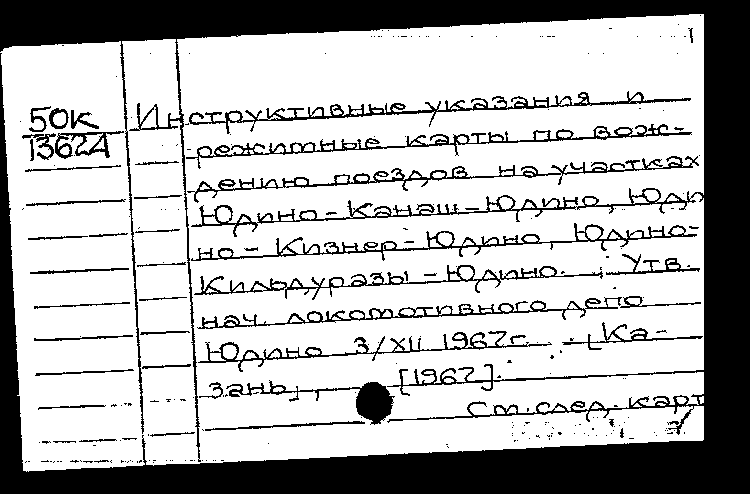 I
50К Инструктивные указания и
13624 режимные карты по вож-
дению поездов на участках
Юдино-Канаш-Юдино, Юди
но-Кизнер-Юдино, Юдино-
Кильдуразы-Юдино. Утв.
нач. локомотивного депо
Юдино 3/XII 1967г. [Ка-
зань], [1967].
См.след.карт